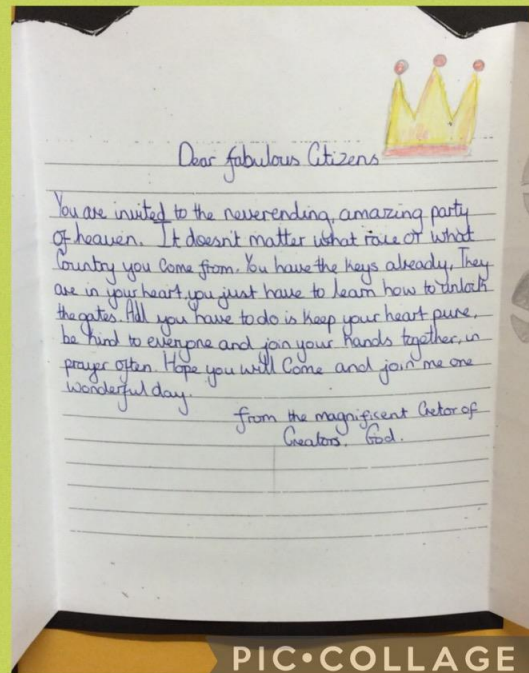 Dear fabulous Citizens
You are invited to the neverending, amazing party
of heaven. It doesn't matter what race or what
Country you Come from. You have the keys already, They
are in your heart, you just have to learn how to unlock
the gates. All you have to do is keep your heart pure,
be kind to everyone and join your hands together, in
prayer often. Hope you will Come and join me one
wonderful day.
from the magnificent Cretor of
Creators. God.
PIC•COLLAGE